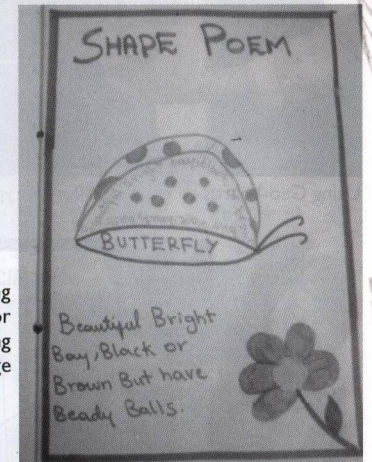 SHAPE POEM
BUTTERFLY
Beautiful Bright
Bay, Black or
Brown But have
Beady Balls.
ng
or
ng
ge